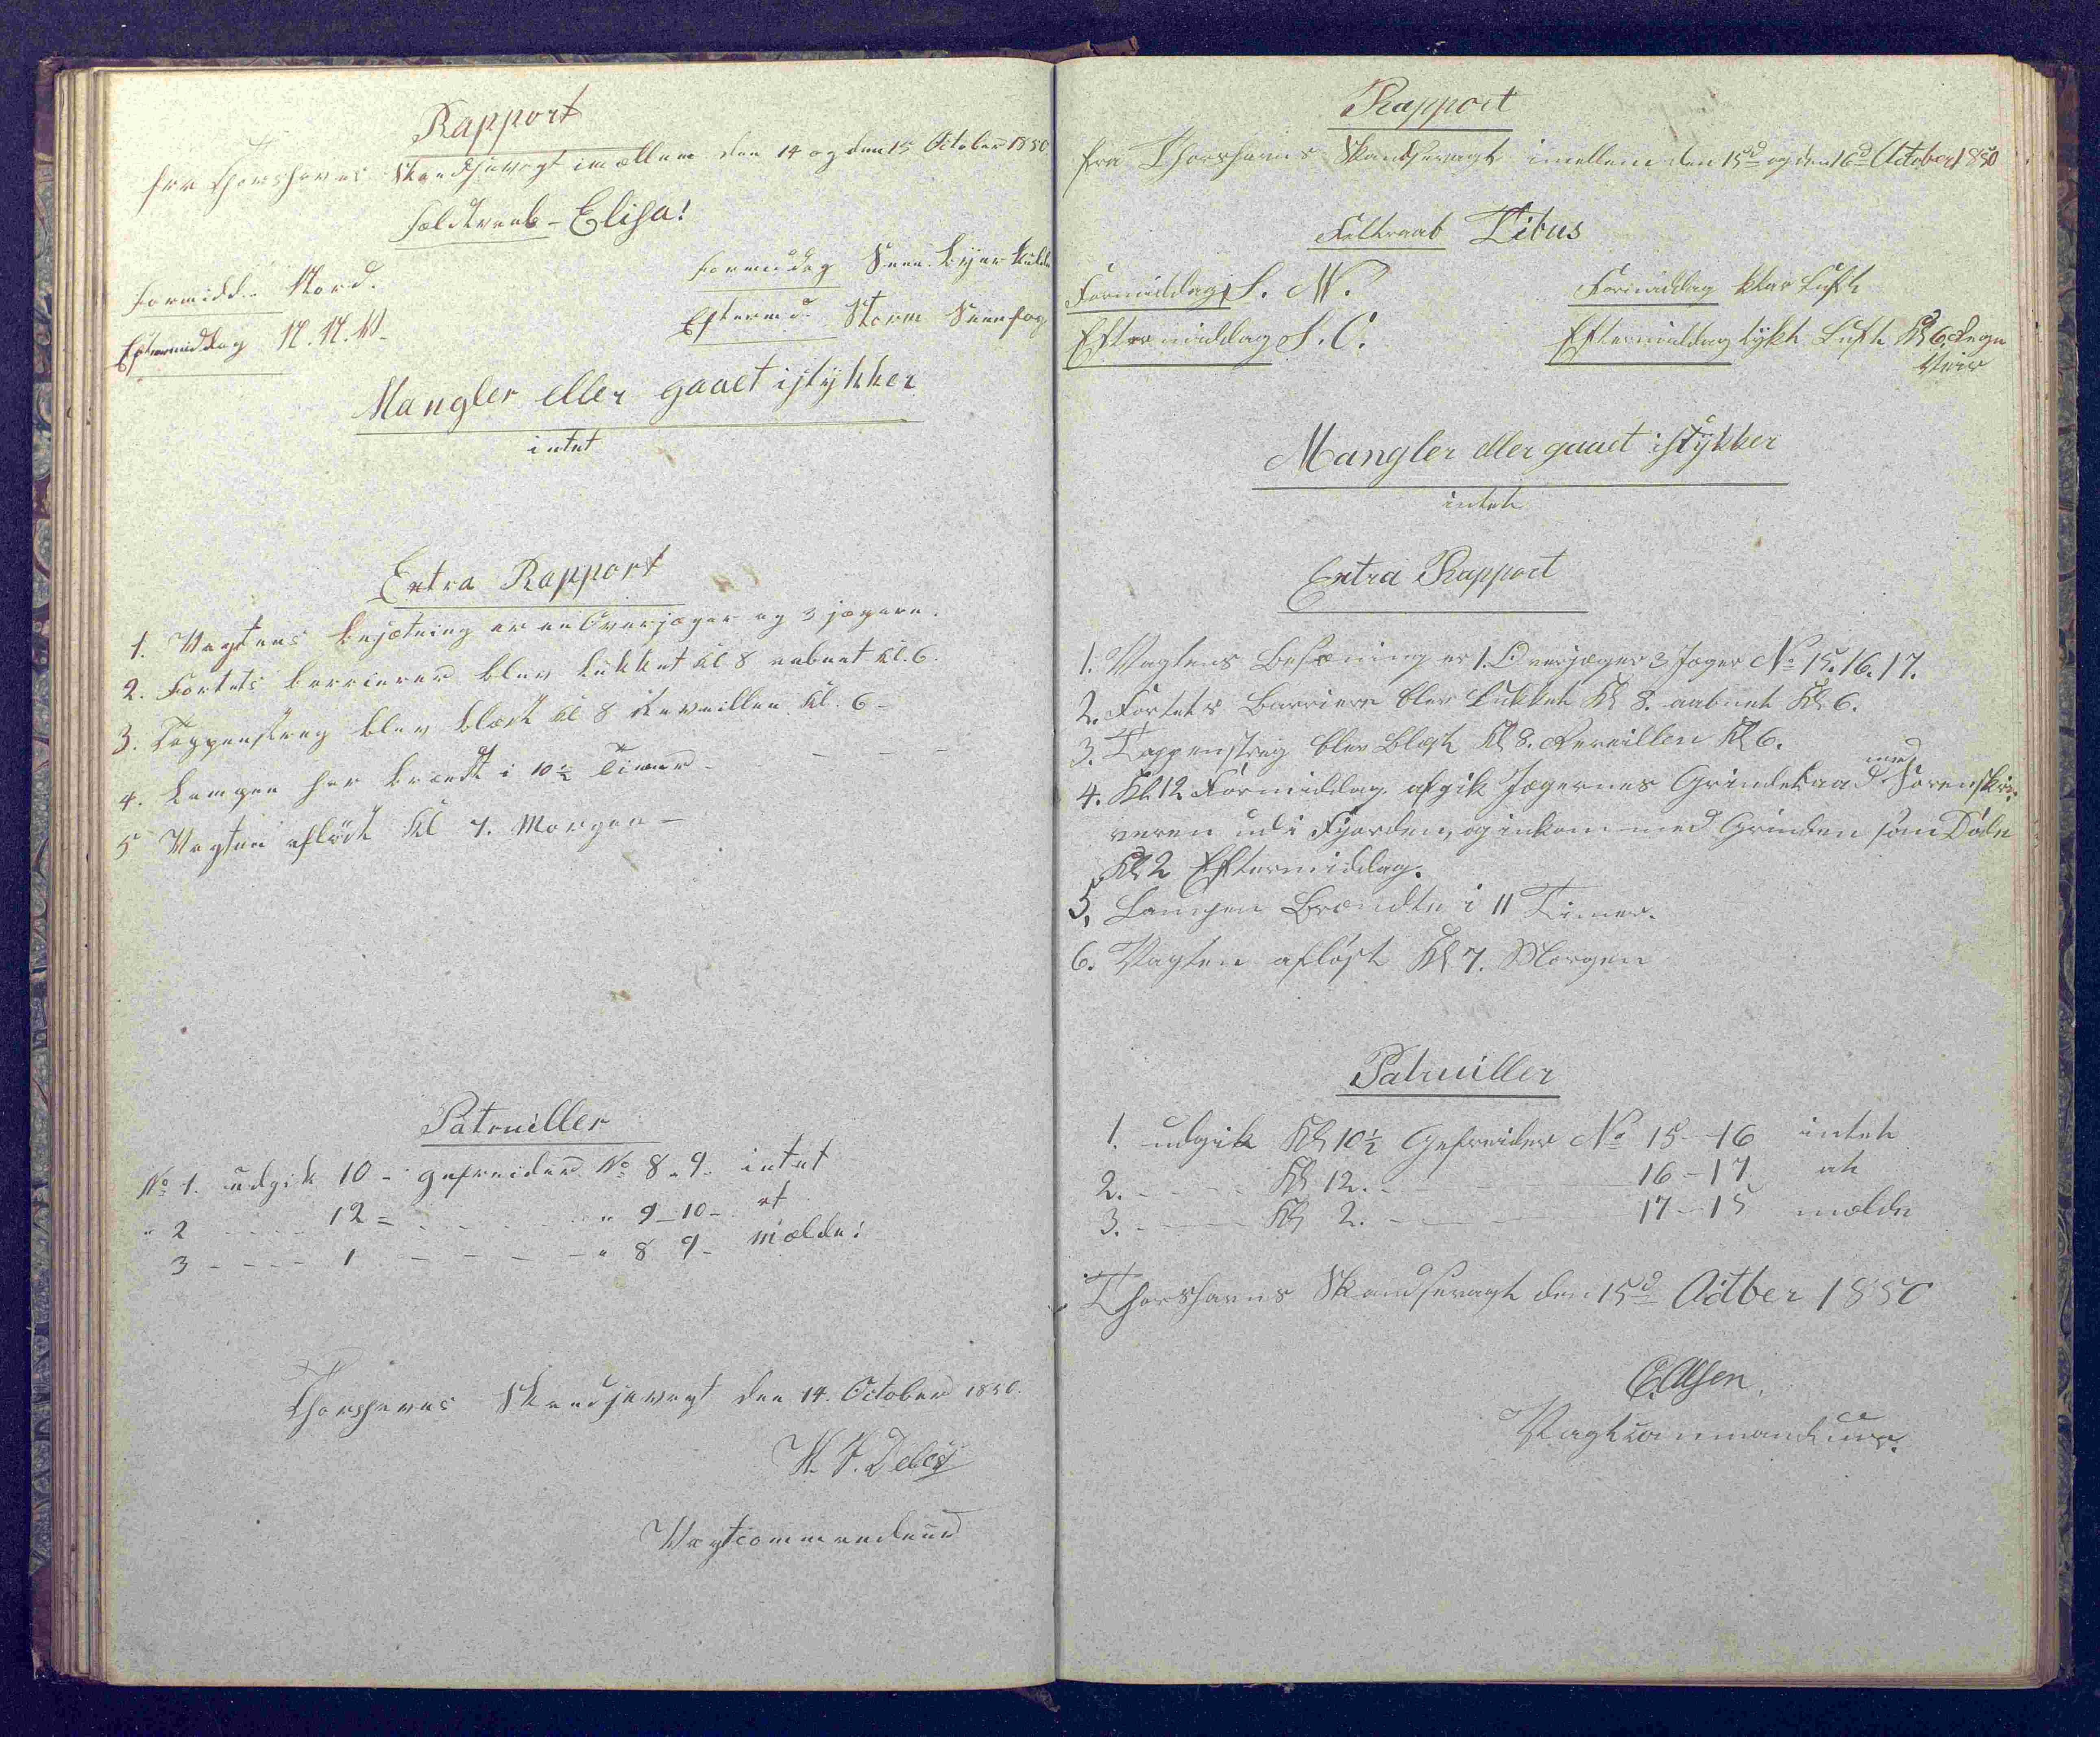 Rapport
fra Thorshavns Skandsevagt imællem den 14 og den 15 October 1850
Fældtraab - Elisa!
Formidd. Nord.
Formidag Snee Byer Kulde
Eftermiddag N. N. V.
Eftermd. Storm Sneefog
Mangler eller gaaet istykker
intet
Extra Rapport
1. Vagtens besætning er en Overjæger og 3 jægere.
2. Fortets barrierer blev lukket kl 8 aabnet kl. 6.
3. Tappenstreg blev blæst kl 8 Reveillen kl. 6 -
4. Lampen har brændt i 10½ Timer -
5 Vagten afløst Kl 7. Morgen -
Patrouiller
No 1. udgik 10 - gefreider No 8 - 9. intet
" 2 - - - - 12 = - - - - " 9 - 10 - at
3 - - - - 1 - - - - - " 8 9 - mælde!
Thorshavns Skandsevagt den 14. October 1850.
Vagtcommandeur
Rapport
fra Thorshavns Skandsevagt imellem den 15d og den 16d October 1850
Feltraab Titus
Formiddag S. W.
Formiddag klar Luft
Eftermiddag S. O.
Eftermiddag tykt Luft Kl 6 Regn
Veir
Mangler eller gaaet istykker
intet
Extra Rapport
1. Vagtens Besætning er 1. Overjæger 3 Jæger No 15. 16. 17.
2. Fortets Barriere blev Lukket Kl 8. aabnet Kl 6.
3. Tappenstreig blev Blæst Kl 8. Reveillen Kl 6.
4. Kl 12 Formiddag afgik Jægernes Grindebaad med Sorenskri-
veren ud i Fjorden, og inkom med Grinden som Døde
Kl 2 Eftermiddag.
5, Lampen Brændte i 11 Timer.
6. Vagten afløst Kl 7. Morgen
Patruiller
1. udgik Kl 10½ Gefreider No 15 - 16 intet
2. - - - - Kl 12. - - - - 16 - 17 at
3. - - - - Kl 2. - - - - 17 - 15 mælde
Thorshavns Skandsevagt den 15d Octber 1850
Vagtcommandeur.